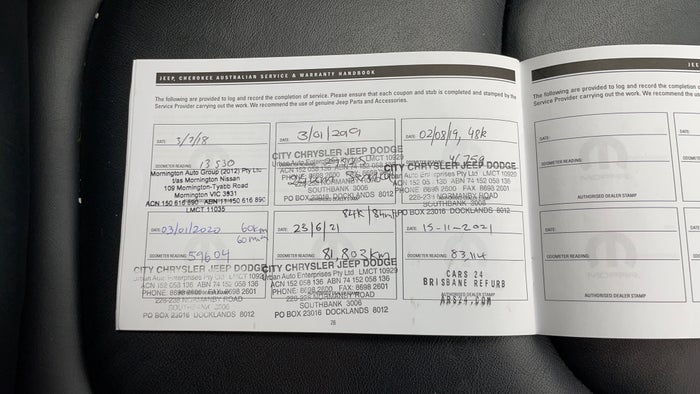 JEEP, CHEROKEE AUSTRALIAN SERVICE & WARRANTY HANDBOOK
The following are provided to log and record the completion of service. Please ensure that each coupon and stub is completed and stamped by the
Service Provider carrying out the work. We recommend the use of genuine Jeep Parts and Accessories.
DATE: 3/7/18
ODOMETER READING: 13 530
Mornington Auto Group (2012) Pty Ltd
t/as Mornington Nissan
109 Mornington-Tyabb Road
Mornington VIC 3931
ACN 150 616 890 ABN 11 150 616 890
LMCT 11035
DATE: 3/01/2019
CITY CHRYSLER JEEP DODGE
Urban Auto Enterprises Pty Ltd LMCT 10929
ACN 152 058 136 ABN 74 152 058 136
PHONE: 8698 2600 FAX: 8698 2601
228-238 NORMANBY ROAD
SOUTHBANK 3006
PO BOX 23016 DOCKLANDS 8012
DATE: 02/08/19, 48k
46759
CITY CHRYSLER JEEP DODGE
Urban Auto Enterprises Pty Ltd LMCT 10929
ACN 152 058 136 ABN 74 152 058 136
PHONE: 8698 2600 FAX: 8698 2601
228-238 NORMANBY ROAD
SOUTHBANK 3006
PO BOX 23016 DOCKLANDS 8012
DATE: 03/01/2020 60km
60 mth
ODOMETER READING: 59604
CITY CHRYSLER JEEP DODGE
Urban Auto Enterprises Pty Ltd LMCT 10929
ACN 152 058 136 ABN 74 152 058 136
PHONE: 8698 2600 FAX: 8698 2601
228-238 NORMANBY ROAD
SOUTHBANK 3006
PO BOX 23016 DOCKLANDS 8012
84k/84mth
DATE: 23/6/21
ODOMETER READING: 81,803km
CITY CHRYSLER JEEP DODGE
Urban Auto Enterprises Pty Ltd LMCT 10929
ACN 152 058 136 ABN 74 152 058 136
PHONE: 8698 2600 FAX: 8698 2601
228-238 NORMANBY ROAD
SOUTHBANK 3006
PO BOX 23016 DOCKLANDS 8012
DATE: 15-11-2021
ODOMETER READING: 83,114
CARS 24
BRISBANE REFURB
AUTHORISED DEALER STAMP
26
JEE
The following are provided to log and record the completion o
Service Provider carrying out the work. We recommend the us
DATE:
ODOMETER READING:
MOPAR
AUTHORISED DEALER STAMP
DATE:
DATE:
ODOMETER READING:
MOPAR
AUTHORISED DEALER STAMP
DATE: